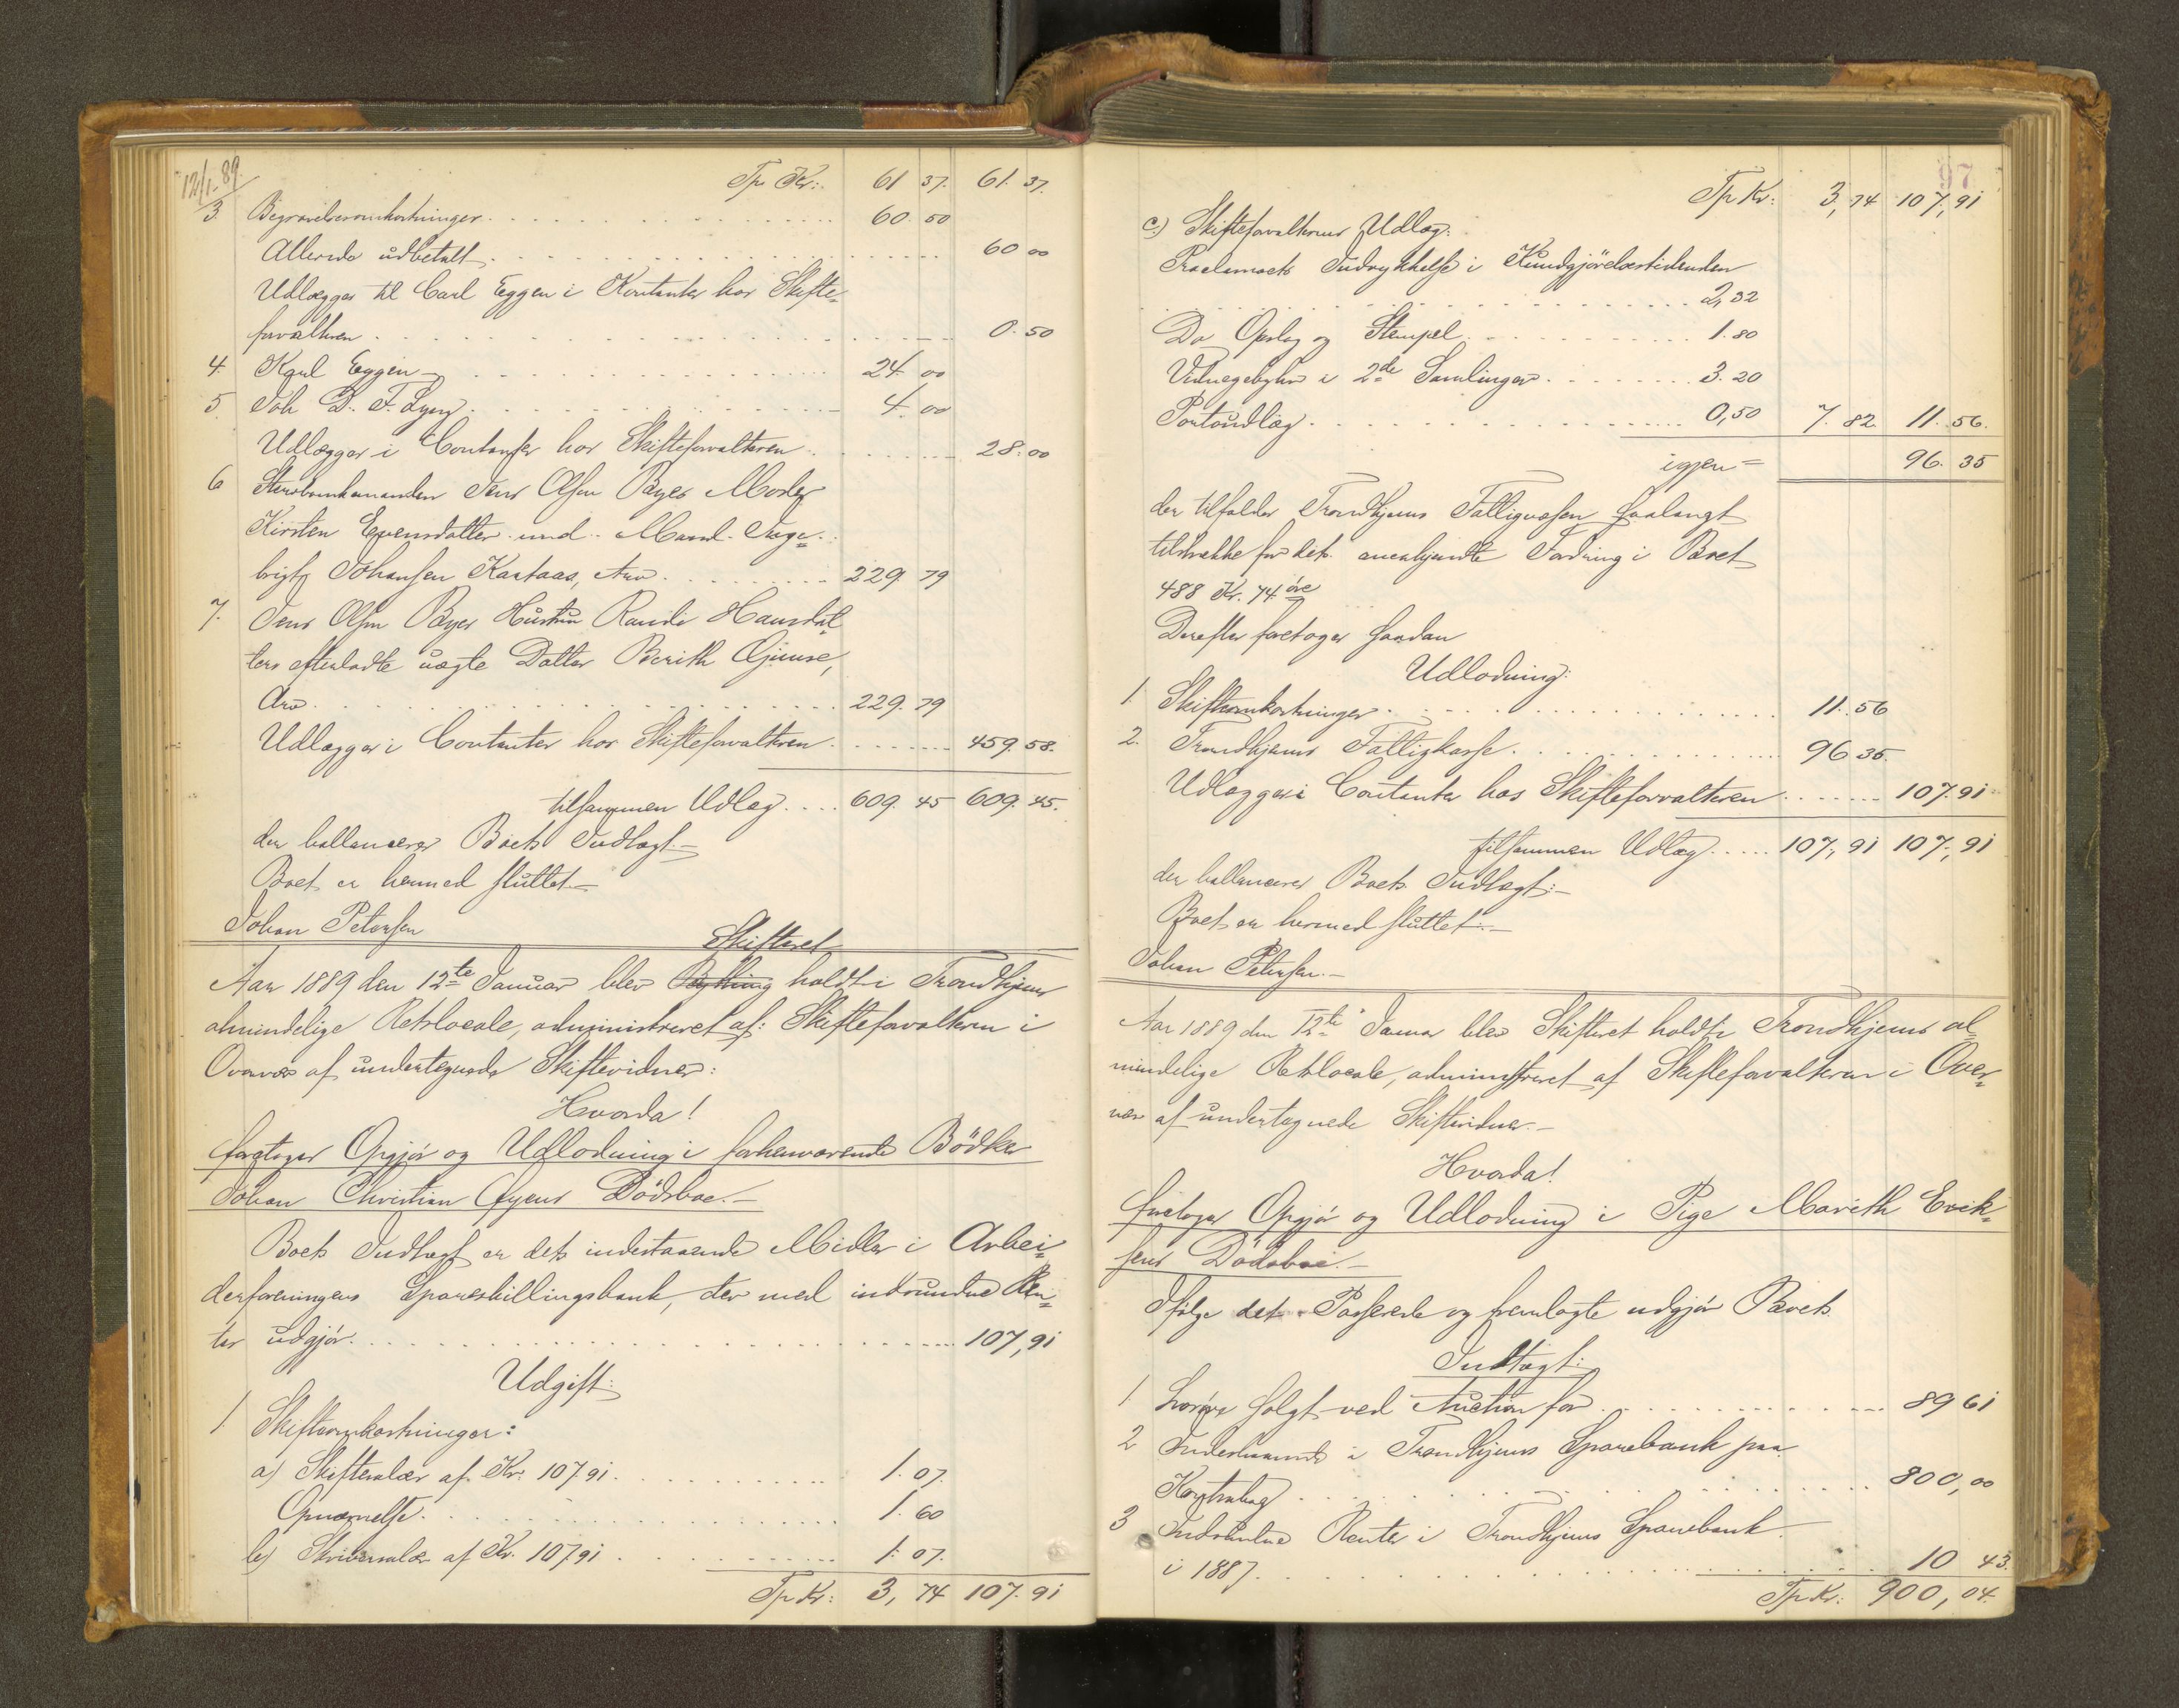 12/1-89.
Tp Kr: 61 37. 61. 37.
3 Begravelsesomkostninger 60. 50
Allerede udbetalt 60 00
Udlægges til Carl Eggen i Kontanter hos Skifte-
forvalteren 0. 50
4. Karl Eggen 24. 00
5. Joh D. F. Lyng 4. 00
Udlægges i Contanter hos Skifteforvalteren 28. 00
6 Jens Olsen Byes Moder
Kirsten Evensdatter med Mand Inge-
brigt Johansen Kaataas, Arv 229. 79
7. Jens Olsen Byes Hustru Randi Hansdat-
ters efterladte uægte Datter Berith Gjimse,
Arv 229. 79
Udlægges i Contanter hos Skifteforvalteren 459. 58.
tilsammen Udlæg 609. 45 609. 45.
der ballancerer Boets Indtægt.-
Boet er hermed sluttet.-
Johan Petersen
Skifteret
Aar 1889 den 12te Januar blev Bything holdt i Trondhjems
almindelige Retslocale, administreret af: Skifteforvalteren i
Overvær af undertegnede Skiftevidner:
Hvorda!
foretoges Opgjör og Udlodning i forhenværende Bödker
Johan Christian Öyens Dödsboe.-
Boets Indtægt er dets indestaaende Midler i Arbei-
derforeningens Spareskillingsbank, der med indvundne Ren-
ter udgjör 107,91
Udgift:
1 Skifteomkostninger:
a) Skiftesalær af Kr. 107.91 1. 07.
Opnævnelse 1. 60
b) Skriversalær af Kr. 107.91 1. 07.
Tp Kr: 3, 74 107. 91
97
Tp Kr: 3, 74 107, 91
c.) Skifteforvalterens Udlæg:
Proclamaets Indrykkelse i Kundgjörelsestidenden
2,32
Do Opslag og Stempel 1. 80
Vidnegebyhr i 2de Samlinger 3. 20
Portoudlæg 0,50 7. 82 11. 56.
igjen = 96. 35
der tilfalder Trondhjems Fattigvæsen saalangt
tilstrække for dets anerkjendte Fordring i Boet
488 Kr. 74 öre
Derefter foretoges saadan
Udlodning:
1. Skifteomkostninger 11. 56
2. Trondhjems Fattigkasse 96 35.
Udlægges i Contanter hos Skifteforvalteren 107. 91
tilsammen Udlæg 107, 91 107, 91
der ballancerer Boets Indtægt:-
Boet er hermed sluttet:-
Johan Petersen.-
Aar 1889 den 12te Januar blev Skifteret holdt i Trondhjems al-
mindelige Retslocale, administreret af Skifteforvalteren i Over-
vær af undertegnede Skiftevidner.-
Hvorda!
foretoges Opgjör og Udlodning i Pige Marith Erik-
sens Dödsboe.-
Ifölge det Passerede og fremlagte udgjör Boets
Indtægt:
1 Lösöre solgt ved Auction for 89 61
2 Indestaaende i Trondhjems Sparebank paa
Kontrabog 800,00
3 Indvundne Renter i Trondhjems Sparebank
i 1887 10 43.
Tp Kr: 900, 04.